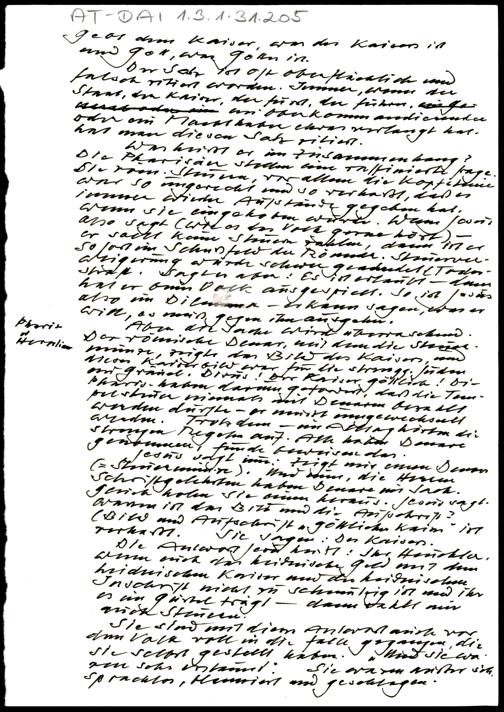 AT-DAI 1.3.1.31.205
gebt dem Kaiser, was des Kaisers ist
und Gott, was Gottes ist.
Der Satz ist oft oberflächlich und
falsch zitiert worden. Immer, wenn der
Staat, der Kaiser, der Fürst, der Führer,
ein Oberkommandierender
oder ein Machthaber etwas verlangt hat,
hat man diesen Satz zitiert.
Was heisst er im Zusammenhang?
Die Pharisäer stellen eine raffinierte Frage.
Die röm. Steuern, vor allem die Kopfsteuer
war so ungerecht und so verhasst, dass es
immer wieder Aufstände gegeben hat,
wenn sie eingehoben wurde. Wenn Jesus
also sagt (wie es das Volk gerne hört)
er sagt keine Steuern zahlen, dann ist er
sofort im Schussfeld der Römer. Steuerver-
weigerung wurde schwer geahndet (Todes-
strafe). Sagt er aber: Es ist erlaubt - dann
hat er beim Volk ausgespielt. So ist Jesus
also im Dilemma - er kann sagen, was er
will, es muß gegen ihn ausgehn.
Aber die Sache wird überraschend.
Pharis
u
Herodian
Der römische Denar, mit dem die Steuer
zeigte das Bild des Kaisers, und
dieses Kaiserbild war für die strengen Juden
ein Gräuel. Divus! Der Kaiser göttlich! Die
Pharis. haben darum gefordert, daß die Tem-
pelsteuer niemals mit Denaren bezahlt
werden durfte - er musst umgewechselt
werden. Trotzdem - im Alltag hörten die
strengen Regeln auf. Alle haben Denare
genommen, Funde beweisen das.
Jesus sagt nun: Zeigt mir einen Denar
(= Steuermünze). Und nun, die Herren
Schriftgelehrten haben Denare im Sack.
Gleich holen sie einen heraus. Jesus sagt:
Wessen ist das Bild und die Aufschrift?
(Bild und Aufschrift "göttlicher Kaiser" ist
verhasst. Sie sagen: Des Kaisers.
Die Antwort Jesu heisst: Ihr Heuchler,
wenn euch das heidnische Geld mit dem
heidnischen Kaiser und der heidnischen
Inschrift nicht zu schmutzig ist und ihr
es im Gürtel trägt - dann zahlt nur
auch Steuern!
Sie sind mit dieser Antwort auch vor
dem Volk voll in die Falle gegangen, die
sie selbst gestellt haben. "Und sie wa-
ren sehr erstaunt." Sie waren ausser sich,
sprachlos, blamiert und geschlagen.